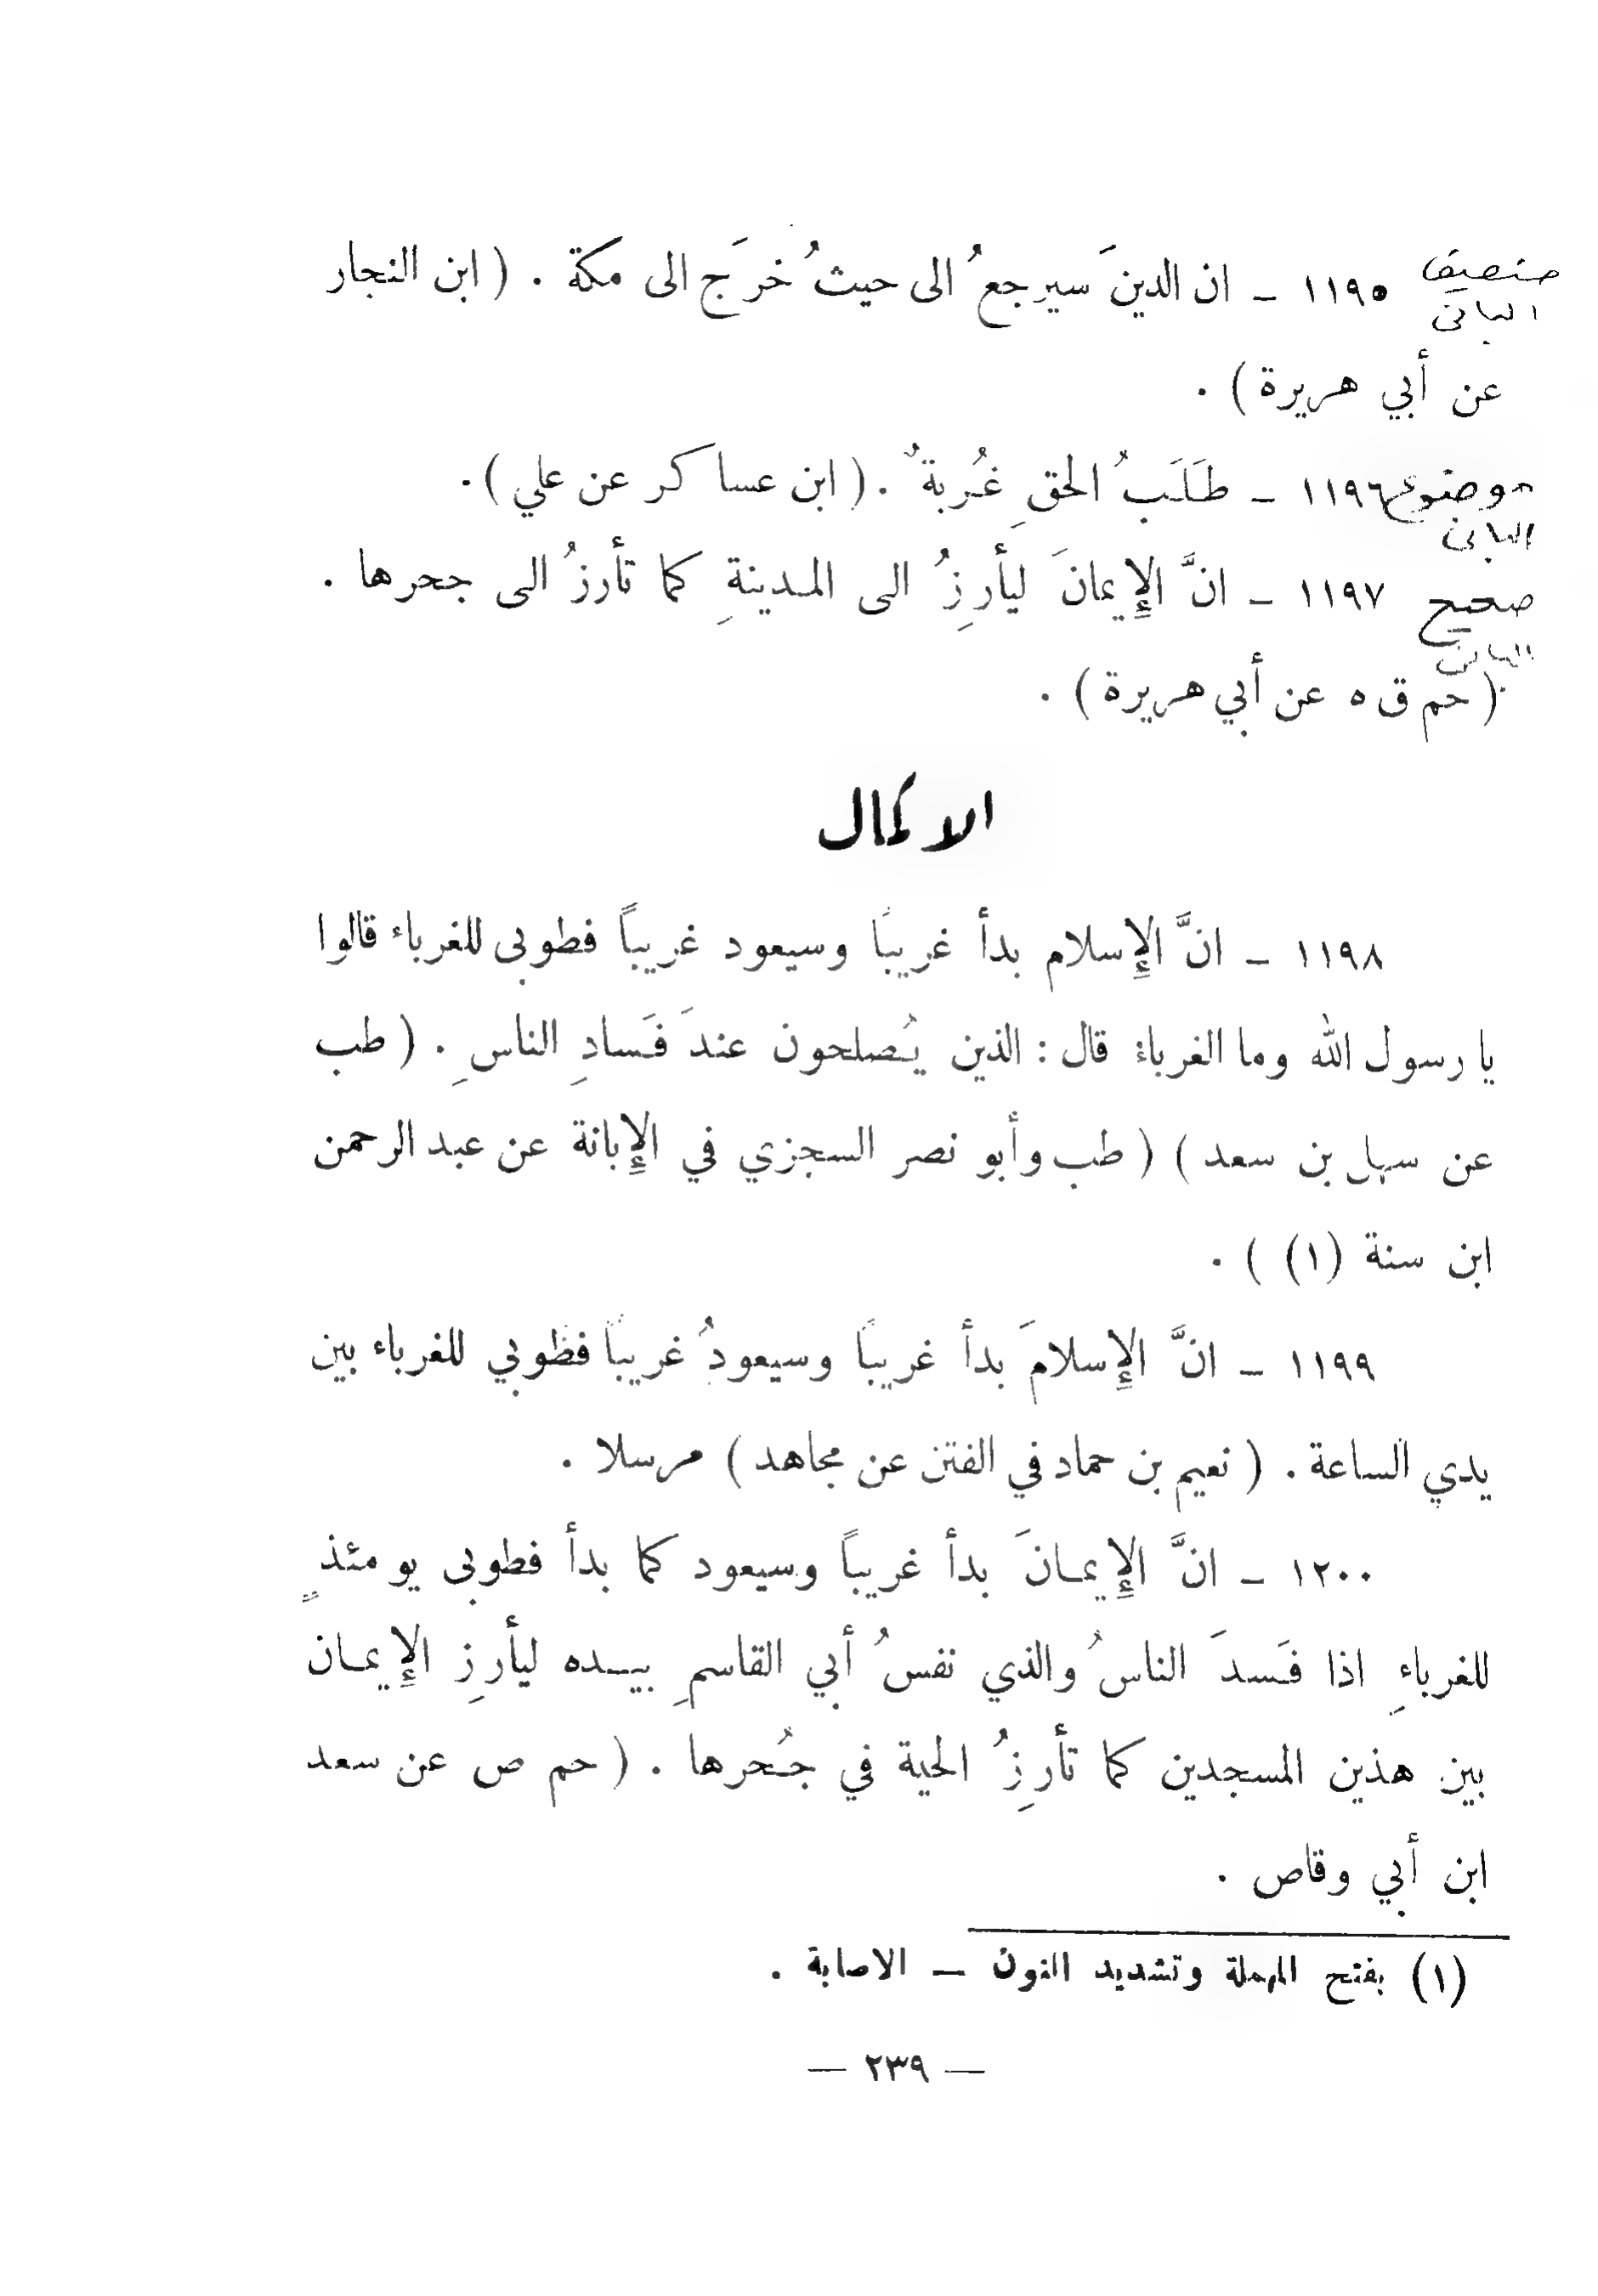 ضعيف ١١٩٥ – ان الدينَ سيرجعُ الى حيثُ خرَج الى مكة . ( ابن النجار
البانى
عن أبي هريرة ) .
موضوع ١١٩٦ – طَلَبُ الحقِ غُربةٌ . ( ابن عساكر عن علي ) .
البانى
صحيح ١١٩٧ – انَّ الإِيمانَ ليأرِزُ الى المدينةِ كما تأرزُ الى جحرها .
البانى
( حم ق ه عن أبي هريرة ) .
الاكمال
١١٩٨ – انَّ الإِسلام بدأ غريبًا وسيعود غريباً فطوبى للغرباء قالوا
يا رسول الله وما الغرباء قال : الذين يُصلحون عندَ فَسادِ الناسِ . ( طب
عن سهل بن سعد ) ( طب وأبو نصر السجزي في الإِبانة عن عبد الرحمن
ابن سنة (١) ) .
١١٩٩ – انَّ الإِسلامَ بدأ غريبًا وسيعودُ غريبًا فطوبي للغرباء بين
يدي الساعة . ( نعيم بن حماد في الفتن عن مجاهد ) مرسلا .
١٢٠٠ – انَّ الإِيمانَ بدأ غريباً وسيعود كما بدأ فطوبى يومئذٍ
للغرباءِ اذا فَسدَ الناسُ والذي نفسُ أبي القاسمِ بيده ليأرِز الإِيمان
بين هذين المسجدين كما تأرِزُ الحية في جُحرها . ( حم ص عن سعد
ابن أبي وقاص .
(١) بفتح المهملة وتشديد النون – الاصابة .
— ٢٣٩ —